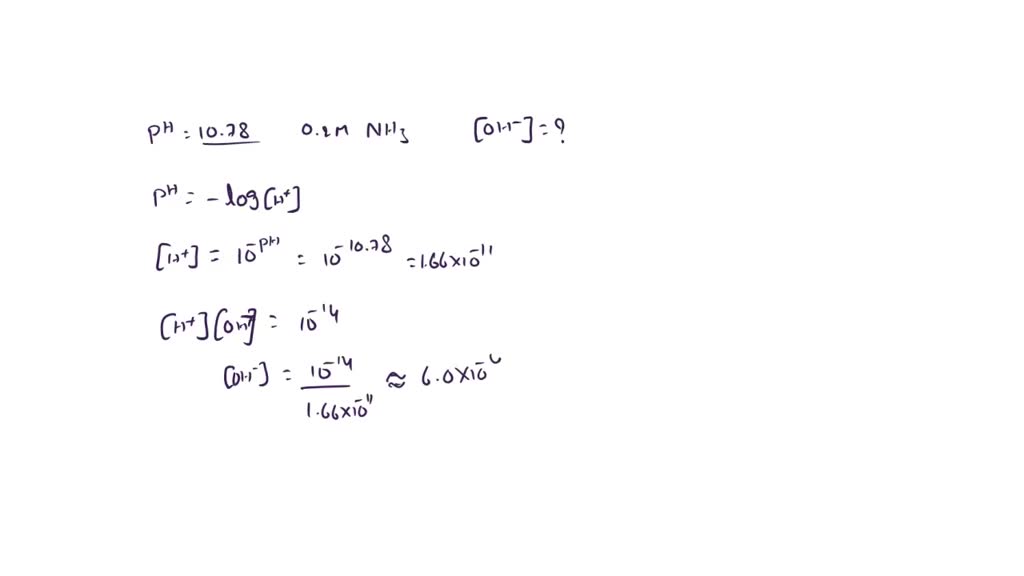 pH = 10.78 0.2M NH3 [OH-] = ?
pH = - log [H+]
[H+] = 10^-pH = 10^-10.78 = 1.66×10^-11
[H+][OH-] = 10^-14
[OH-] = 10^-14 / 1.66×10^-11 ≈ 6.0×10^-6